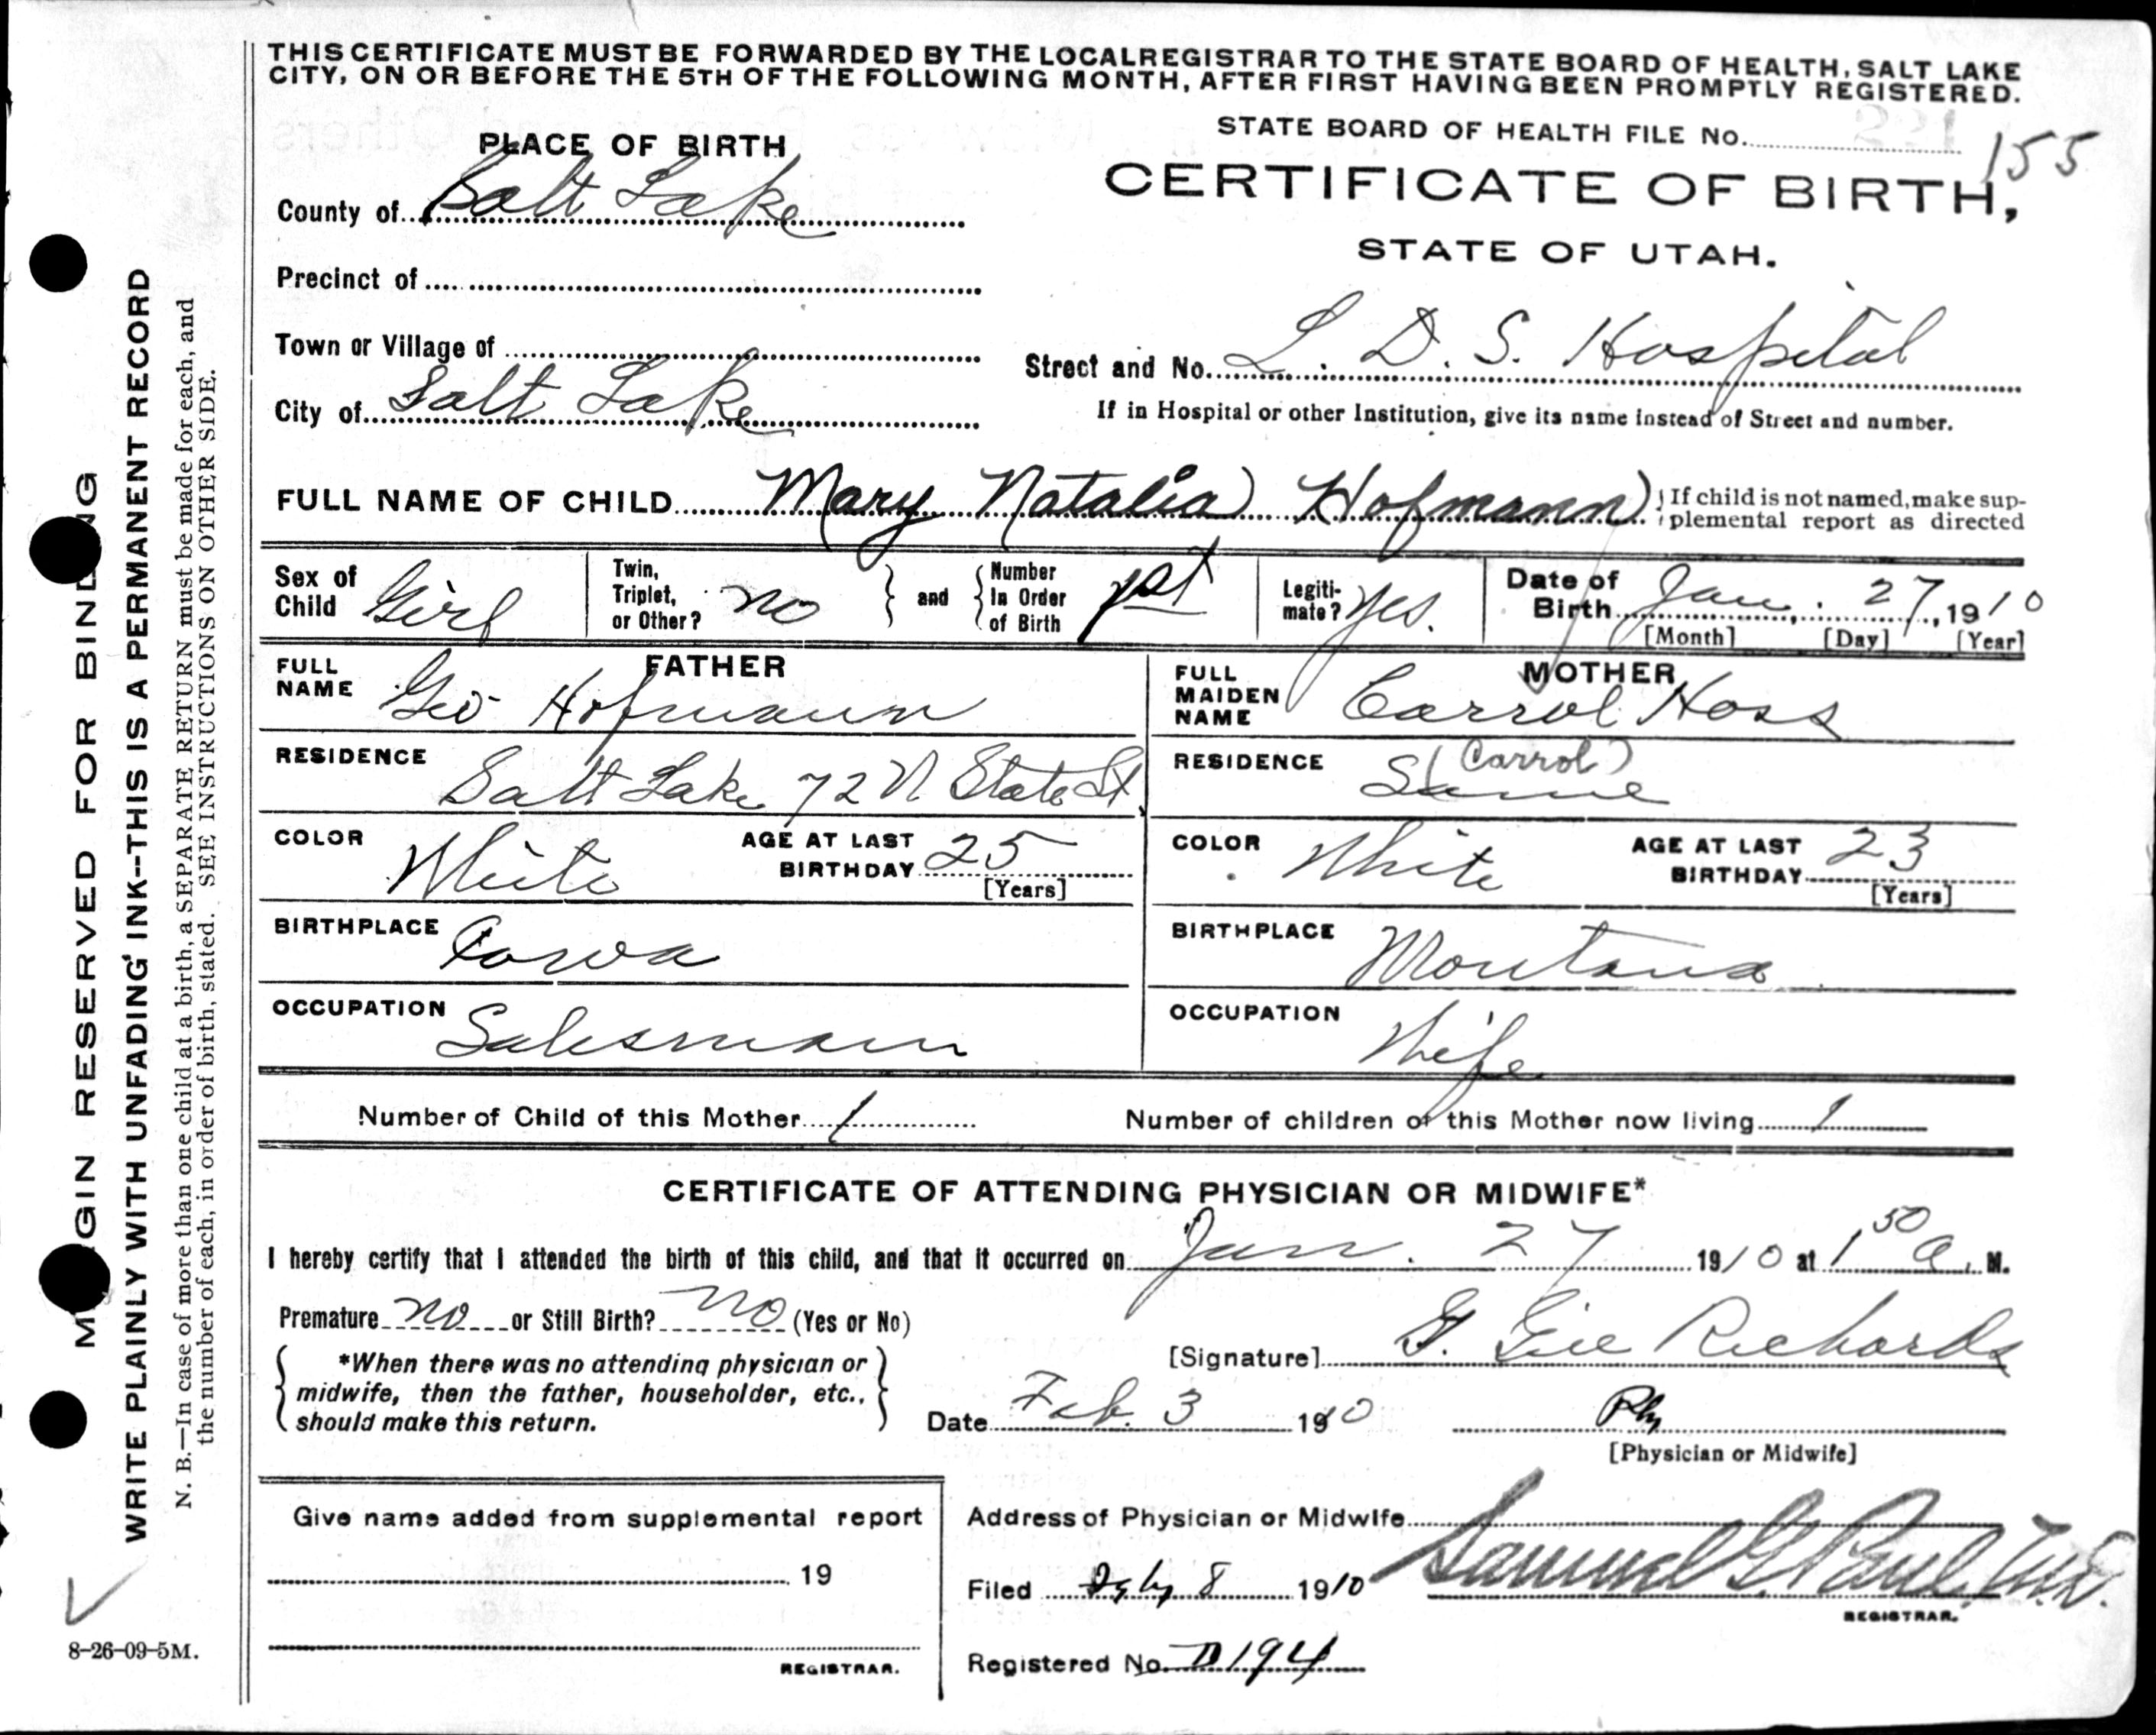 THIS CERTIFICATE MUST BE FORWARDED BY THE LOCALREGISTRAR TO THE STATE BOARD OF HEALTH, SALT LAKE
CITY, ON OR BEFORE THE 5TH OF THE FOLLOWING MONTH, AFTER FIRST HAVING BEEN PROMPTLY REGISTERED.
STATE BOARD OF HEALTH FILE No. 155
PLACE OF BIRTH
CERTIFICATE OF BIRTH,
STATE OF UTAH.
County of Salt Lake
Precinct of
Town or Village of
Street and No. L. D. S. Hospital
City of Salt Lake
If in Hospital or other Institution, give its name instead of Street and number.
FULL NAME OF CHILD Mary Natalia Hofmann
If child is not named, make sup-
plemental report as directed
Sex of Child Girl
Twin, Triplet, or Other? no
and
Number In Order of Birth 1st
Legiti-mate? Yes.
Date of Birth Jan. 27, 1910
[Month] [Day] [Year]
FATHER
FULL NAME Geo Hofmann
RESIDENCE Salt Lake 72 N State St
COLOR White
AGE AT LAST BIRTHDAY 25
[Years]
BIRTHPLACE Iowa
OCCUPATION Salesman
MOTHER
FULL MAIDEN NAME Carrol Hoss
(Carrol)
RESIDENCE Same
COLOR White
AGE AT LAST BIRTHDAY 23
[Years]
BIRTHPLACE Montana
OCCUPATION Wife
Number of Child of this Mother 1
Number of children of this Mother now living 1
CERTIFICATE OF ATTENDING PHYSICIAN OR MIDWIFE*
I hereby certify that I attended the birth of this child, and that it occurred on Jan. 27 1910 at 1 50 a. M.
Premature no or Still Birth? no (Yes or No)
*When there was no attending physician or
midwife, then the father, householder, etc.,
should make this return.
[Signature] G. Gill Richards
Date Feb. 3 1910
Phy
[Physician or Midwife]
Give name added from supplemental report
19
REGISTRAR.
Address of Physician or Midwife
Filed 8 1910
Samuel G. Paul, M.D.
REGISTRAR.
Registered No. 194
MARGIN RESERVED FOR BINDING
WRITE PLAINLY WITH UNFADING INK--THIS IS A PERMANENT RECORD
N. B.—In case of more than one child at a birth, a SEPARATE RETURN must be made for each, and
the number of each, in order of birth, stated. SEE INSTRUCTIONS ON OTHER SIDE.
8-26-09-5M.